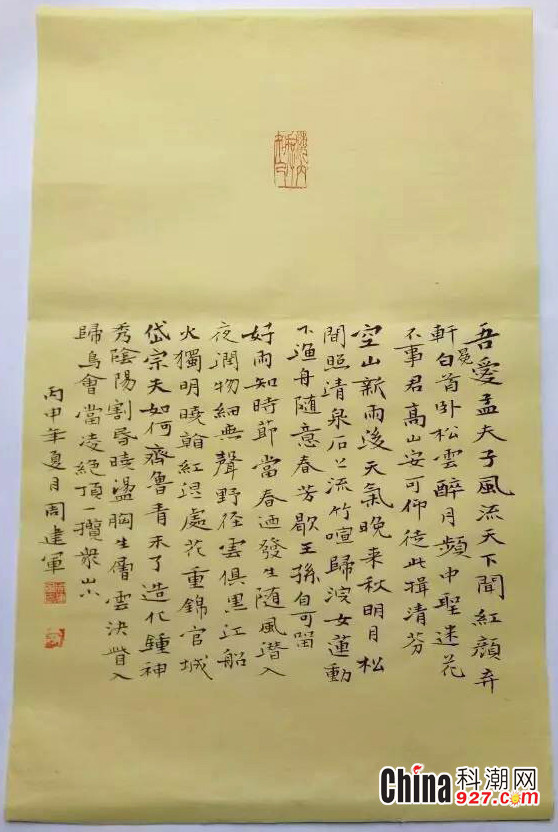 吾愛孟夫子風流天下聞紅顏弃
軒冕白首卧松雲醉月頻中聖迷花
不事君高山安可仰徒此揖清芬
空山新雨後天氣晚来秋明月松
間照清泉石上流竹喧歸浣女蓮動
下漁舟随意春芳歇王孫自可留
好雨知時節當春迺發生随風潜入
夜潤物細無聲野径雲俱黑江船
火獨明曉看紅湿處花重錦官城
岱宗夫如何齊魯青未了造化鍾神
秀陰陽割昏曉盪胸生層雲决眥入
歸鳥會當凌絶頂一攬衆山小
丙申年夏月周建軍
China科潮网
927.com